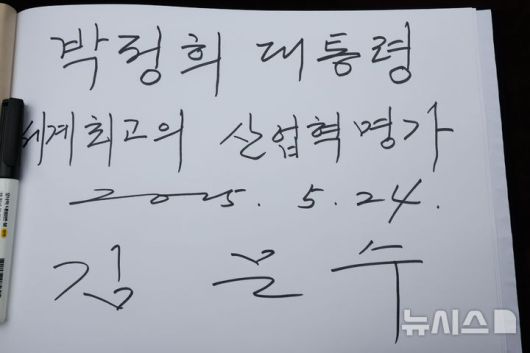 박정희 대통령
세계최고의 산업혁명가
2025. 5. 24.
김 문 수
뉴시스